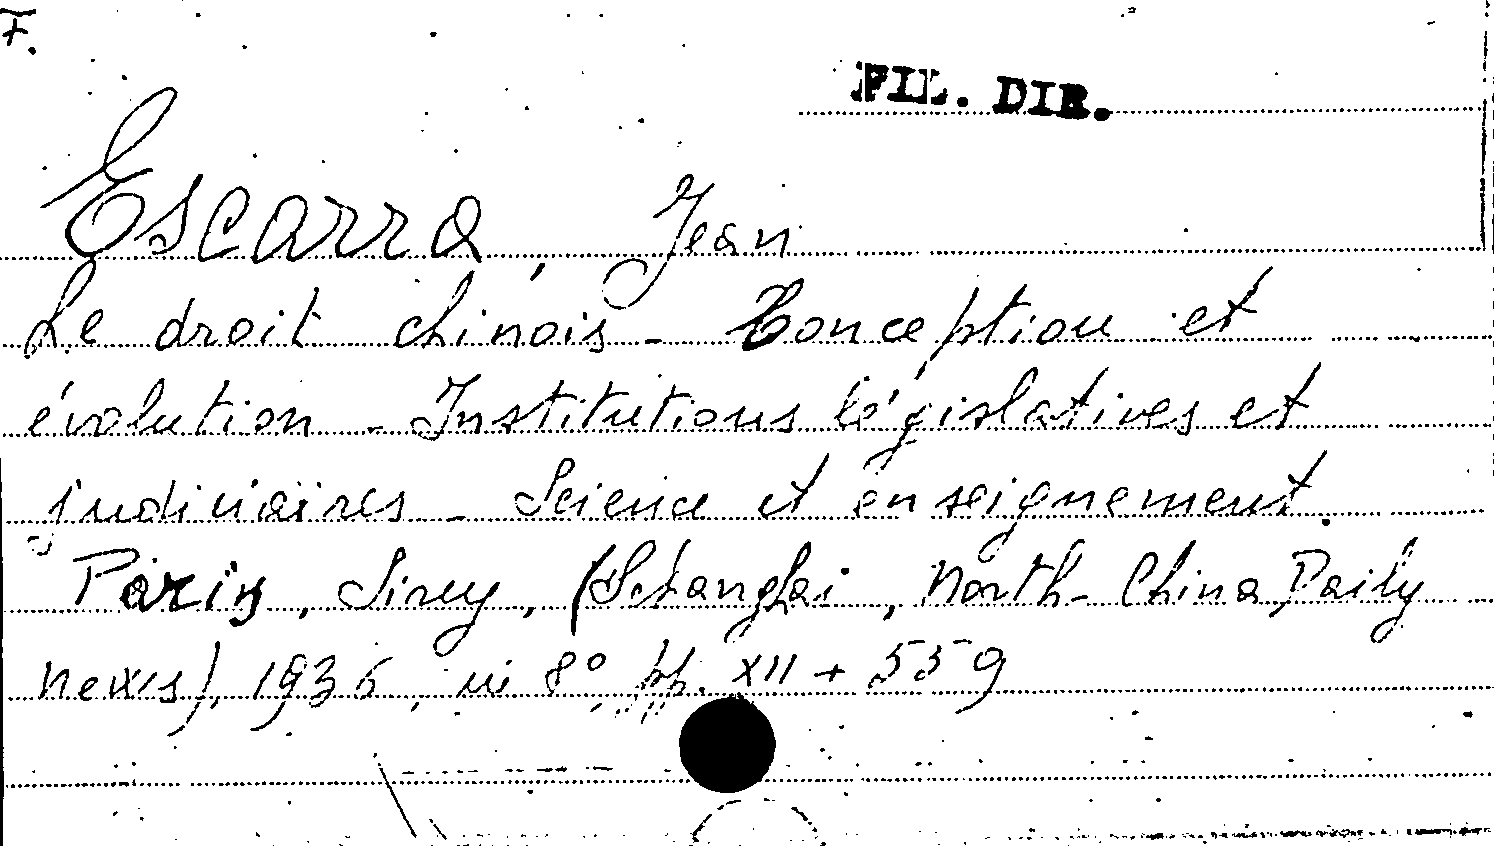 F.
FIL. DIR.
Escarra, Jean
Le droit chinois - Conception et
évolution - Institutions législatives et
judiciaires - Science et enseignement.
Paris, Sirey, (Schanghai, North-China Daily
News), 1936, in 8°, pp. XII + 559